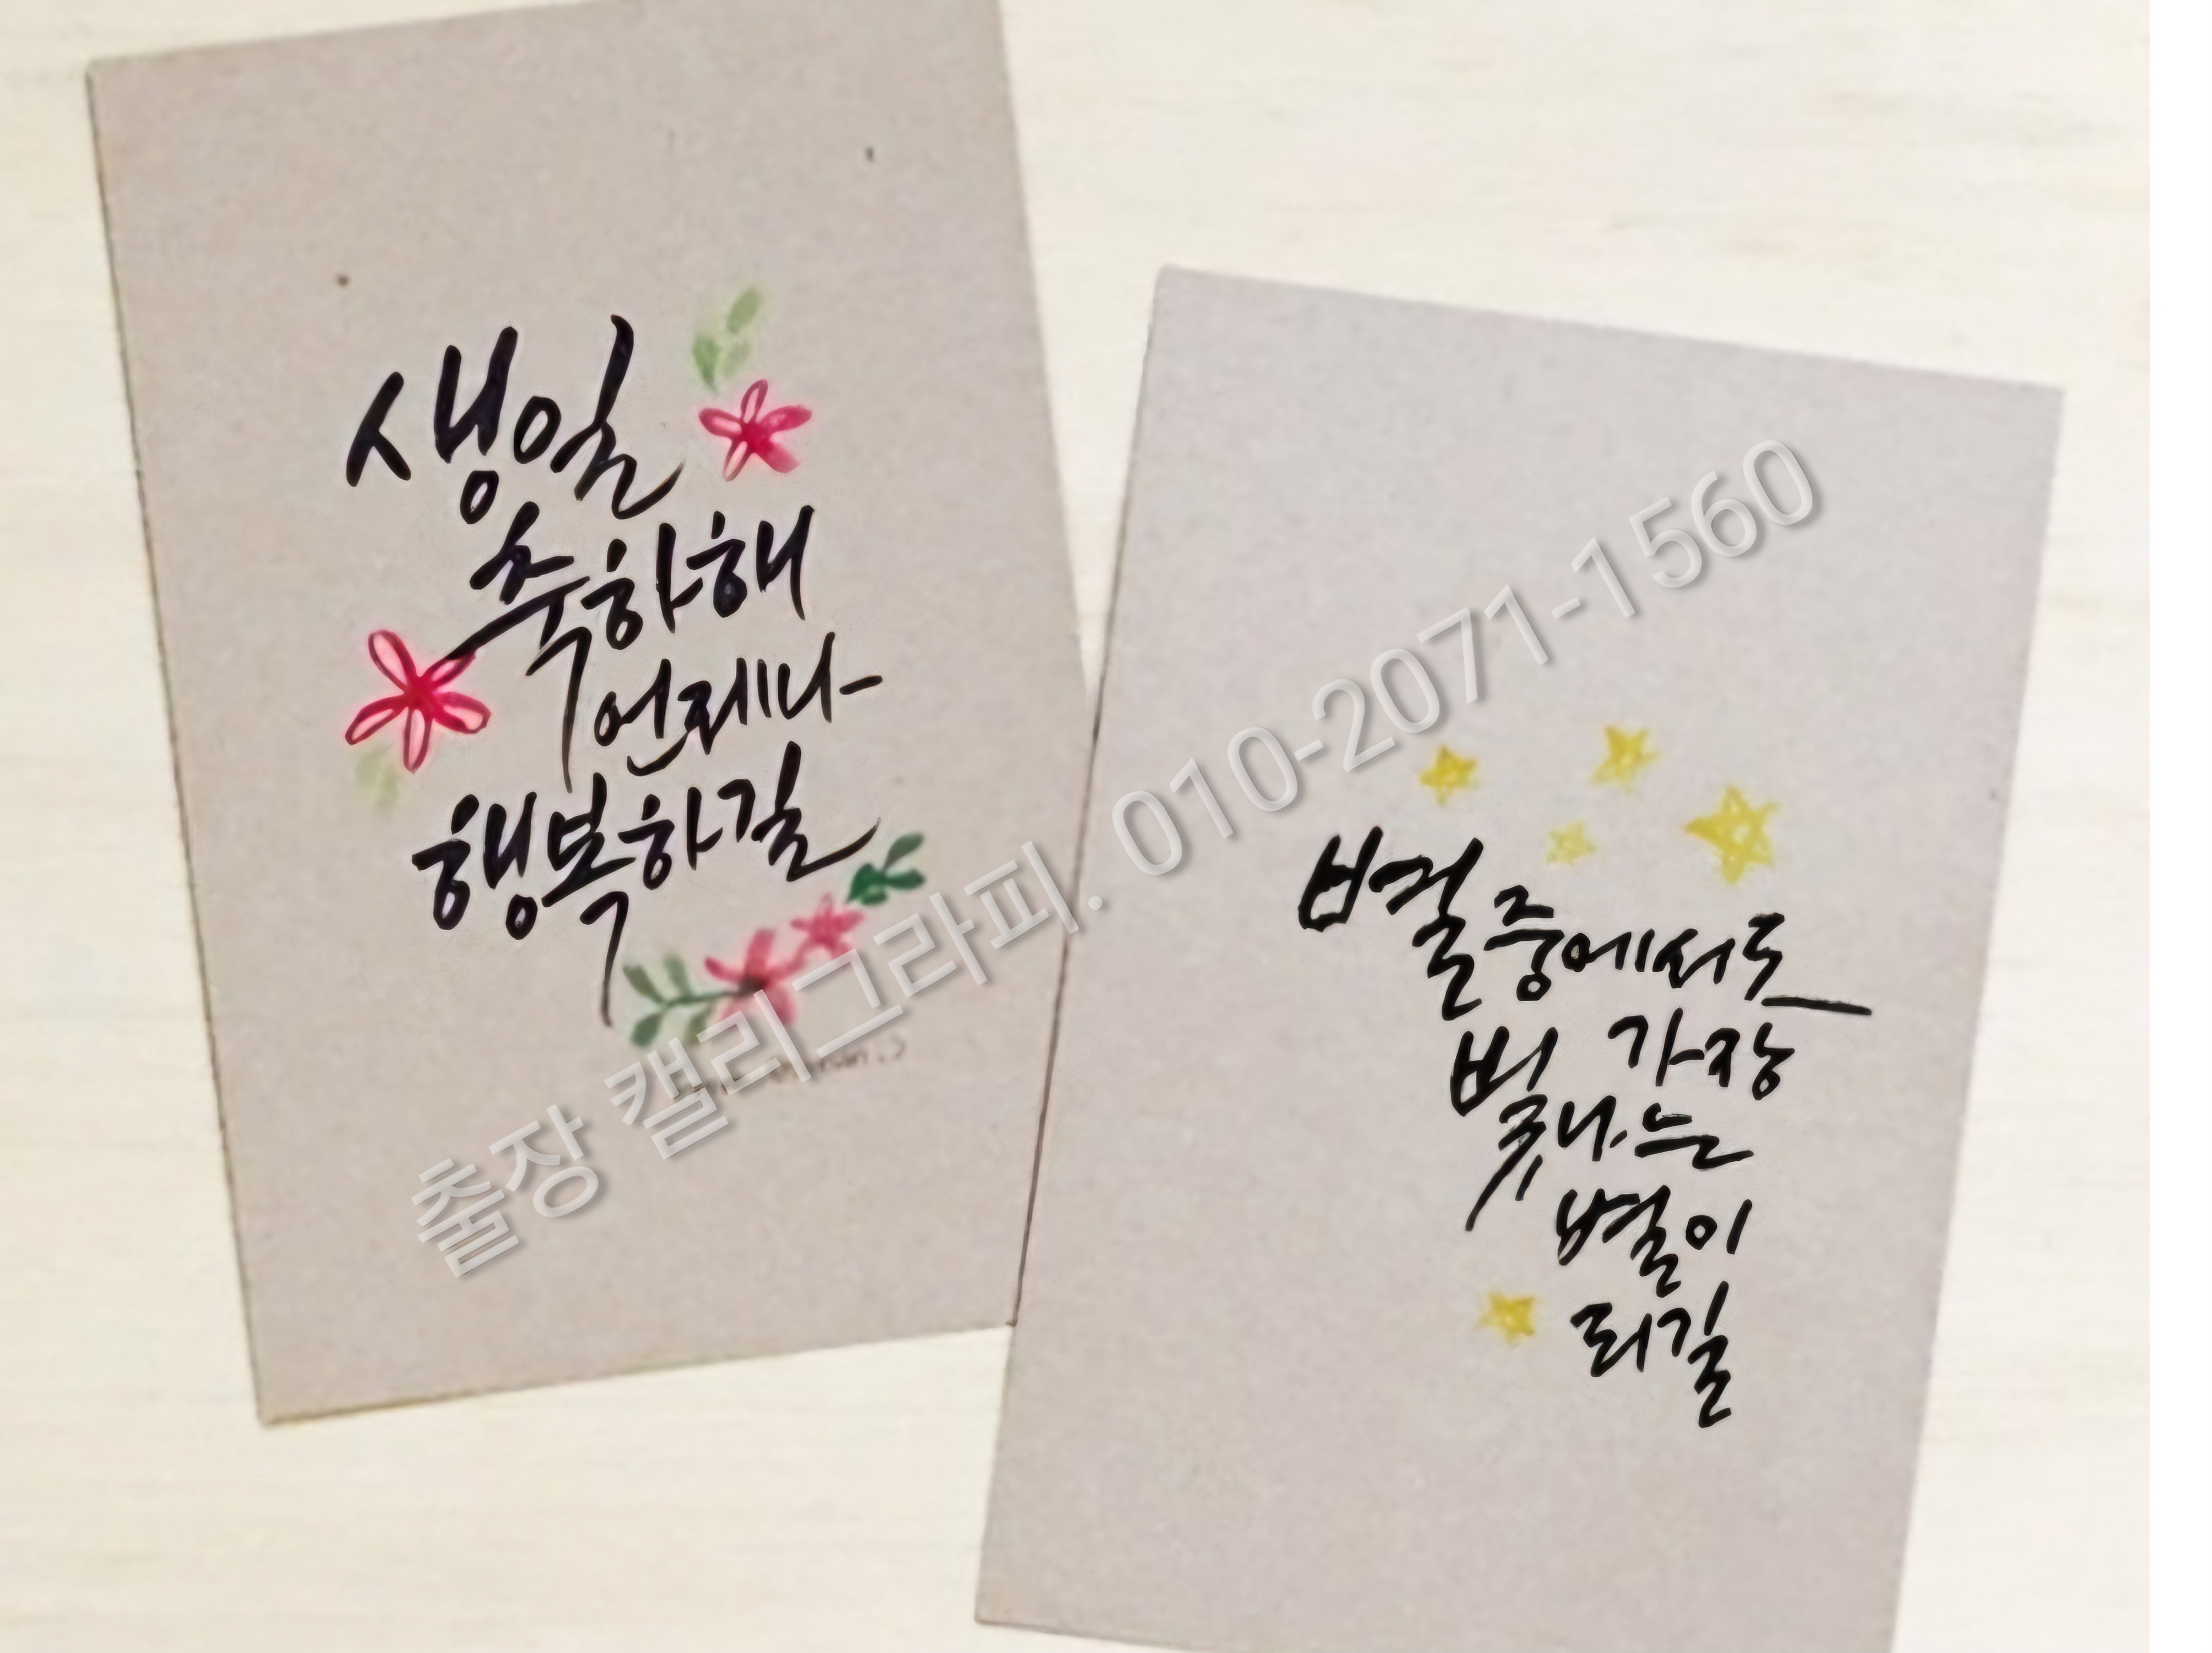 생일
축하해
언제나
행복하길
별중에서도
가장
빛나는
별이
되길
출장 캘리그라피. 010-2071-1560